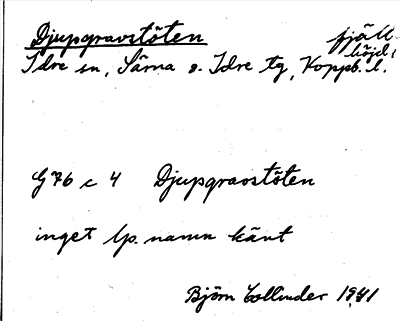 Djupgravstöten fjäll-
höjd
Idre sn, Särna o. Idre tg, Koppb. l.
G 76 c 4 Djupgravstöten
inget lp. namn känt
Björn Collinder 1941